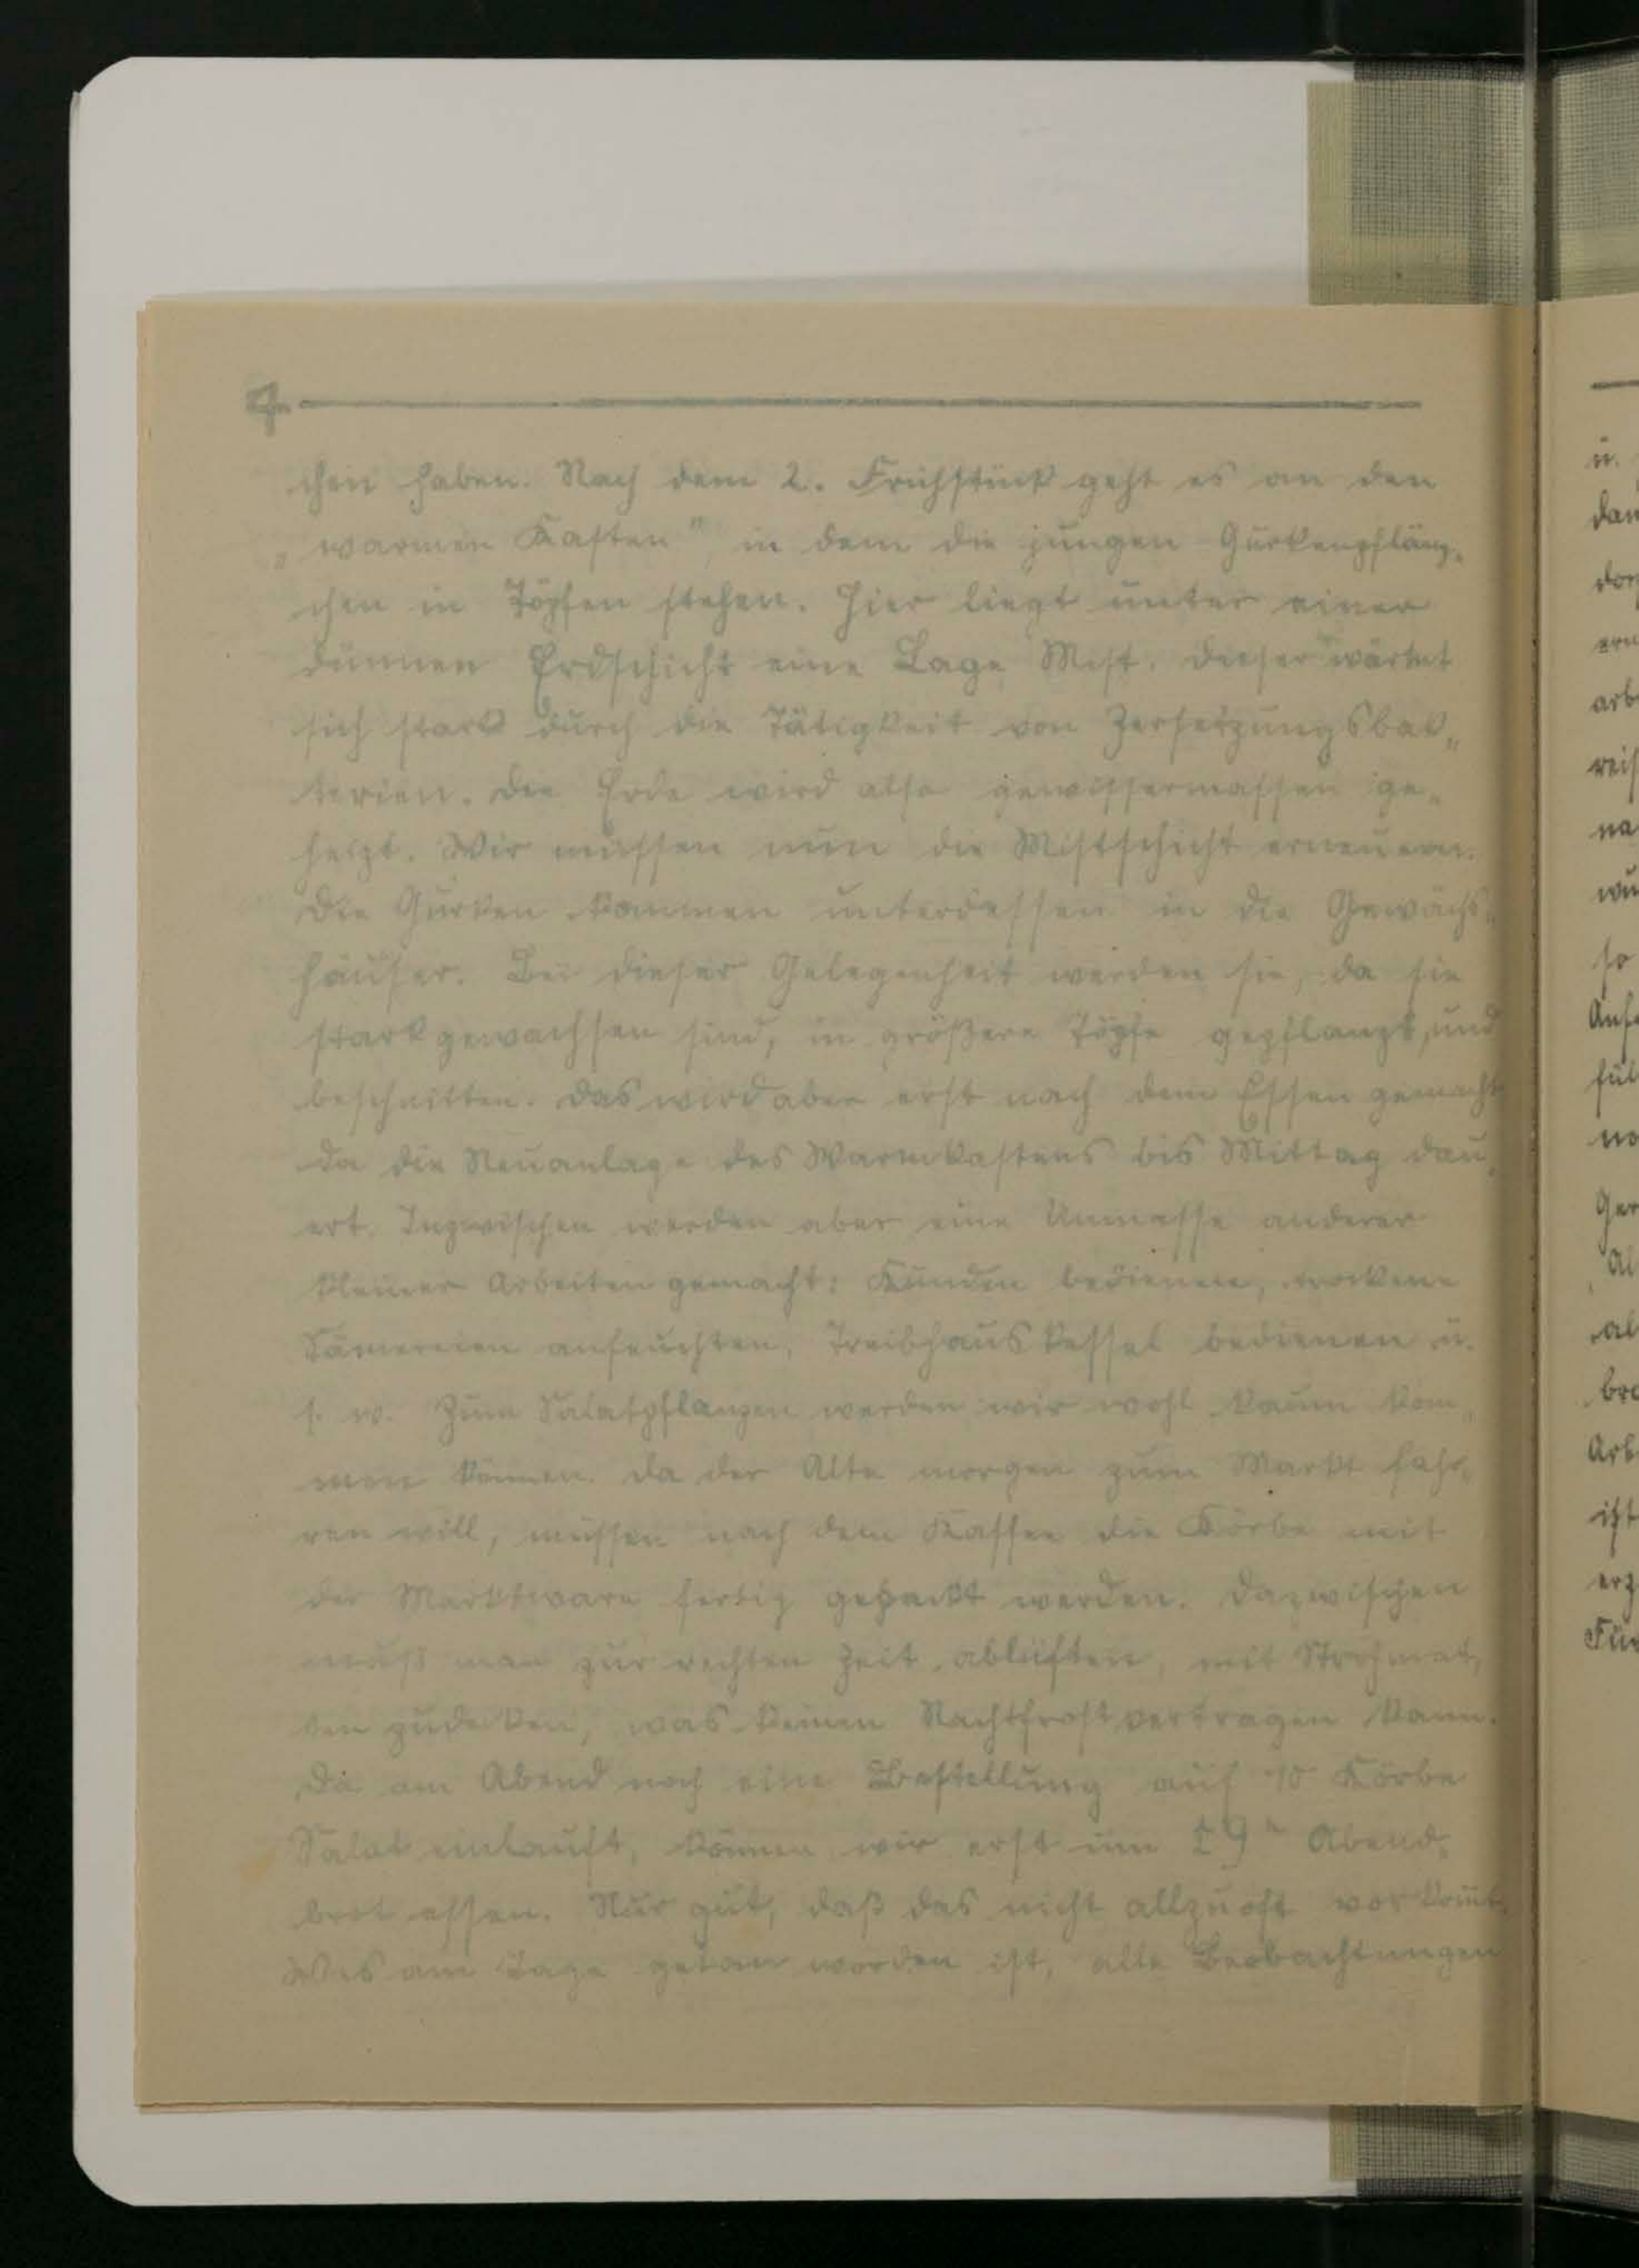 4.
chen haben. Nach dem 2. Frühstück geht es an den
„warmen Kasten", in dem die jungen Gurkenpflänz-
chen in Töpfen stehen. Hier liegt unter einer
dünnen Erdschicht eine Lage Mist. Dieser wärmt
sich stark durch die Tätigkeit von Zersetzungsbak-
terien. Die Erde wird also gewissermassen ge-
heizt. Wir müssen nun die Mistschicht erneuern.
Die Gurken kommen unterdessen in die Gewächs-
häuser. Bei dieser Gelegenheit werden sie, da sie
stark gewachsen sind, in größere Töpfe gepflanzt, und
beschnitten. Das wird aber erst nach dem Essen gemacht
da die Neuanlage des Warmkastens bis Mittag dau-
ert. Inzwischen werden aber eine Unmasse anderer
kleiner Arbeiten gemacht: Kunden bedienen, trockene
Sämereien anfeuchten, Treibhauskessel bedienen u.
s. w. Zum Salatpflanzen werden wir wohl kaum kom-
men können. Da der Alte morgen zum Markt fah-
ren will, müssen nach dem Kaffee die Körbe mit
der Marktware fertig gepackt werden. Dazwischen
muß man zur rechten Zeit ablüften, mit Strohmat-
ten zudecken, was keinen Nachtfrost vertragen kann.
Da am Abend noch eine Bestellung auf 10 Körbe
Salat einläuft, können wir erst um Abend-
brot essen. Nur gut, daß das nicht allzuoft vorkom̅t.
Was am Tage getan worden ist, alle Beobachtungen